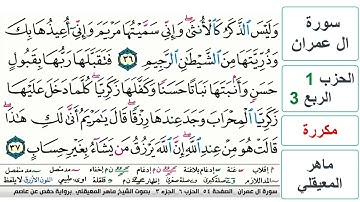 وَلَيْسَ ٱلذَّكَرُ كَٱلْأُنثَىٰ ۖ وَإِنِّى سَمَّيْتُهَا مَرْيَمَ وَإِنِّىٓ أُعِيذُهَا بِكَ
وَذُرِّيَّتَهَا مِنَ ٱلشَّيْطَـٰنِ ٱلرَّجِيمِ ٣٦ فَتَقَبَّلَهَا رَبُّهَا بِقَبُولٍ
حَسَنٍ وَأَنۢبَتَهَا نَبَاتًا حَسَنًا وَكَفَّلَهَا زَكَرِيَّا ۖ كُلَّمَا دَخَلَ عَلَيْهَا
زَكَرِيَّا ٱلْمِحْرَابَ وَجَدَ عِندَهَا رِزْقًا ۖ قَالَ يَـٰمَرْيَمُ أَنَّىٰ لَكِ هَـٰذَا ۖ
قَالَتْ هُوَ مِنْ عِندِ ٱللَّهِ ۖ إِنَّ ٱللَّهَ يَرْزُقُ مَن يَشَآءُ بِغَيْرِ حِسَابٍ ٣٧
سورة ال عمران الصفحة ٥٤ الحزب ٦ الجزء ٣ بصوت الشيخ ماهر المعيقلي برواية حفص عن عاصم
سورة
ال عمران
الحزب 1
الربع 3
مكررة
ماهر
المعيقلي